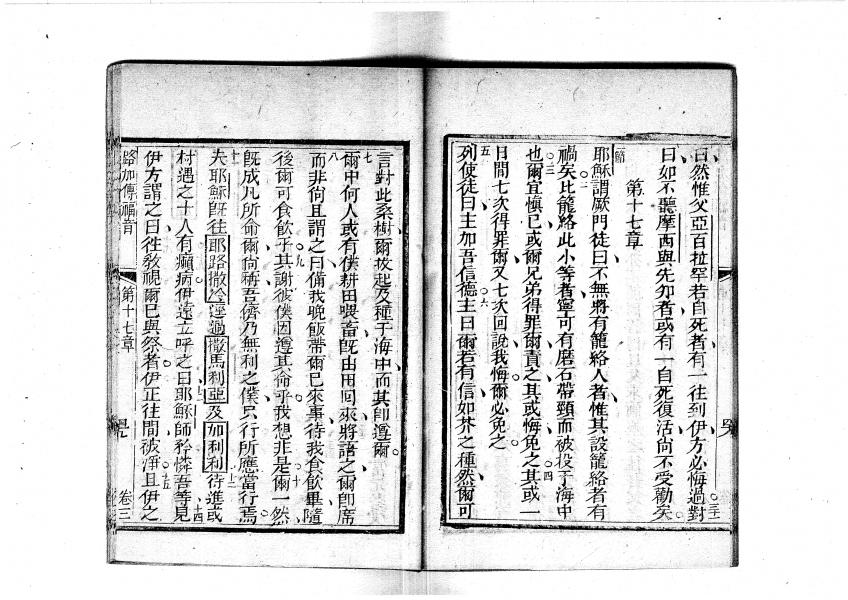 曰然惟父亞百拉罕若自死者有一往到伊方必悔過對
曰如不聽摩西與先知者或有一自死復活尚不受勸矣
第十七章
節
耶穌謂厥門徒曰不無將有籠絡人者惟其設籠絡者有
禍矣比籠絡此小等者寧可有磨石帶頸而被投于海中
也爾宜慎已或爾兄弟得罪爾責之其或悔免之其或一
日間七次得罪爾又七次回說我悔爾必免之
列使徒曰主加吾信德主曰爾若有信如芥之種然爾可
言對此桑樹爾拔起及種于海中而其即遵爾
爾中何人或有僕耕田喂畜既由田回來將語之爾即席
而非尚且謂之曰備我晚飯帶爾巳來事待我食飲畢隨
後爾可食飲乎其謝彼僕因遵其侖乎我想非是爾一然
既成凡所命爾尚稱吾儕乃無利之僕只行所應當行焉
夫耶穌既往耶路撒冷逕過撒馬利亞及加利利待進或
村遇之十人有癩病伊遠立呼之曰耶穌師矜憐吾等見
伊方謂之曰徃教視爾巳與祭者伊正往間被淨且伊之
路加傳福音
第十七章
卷三